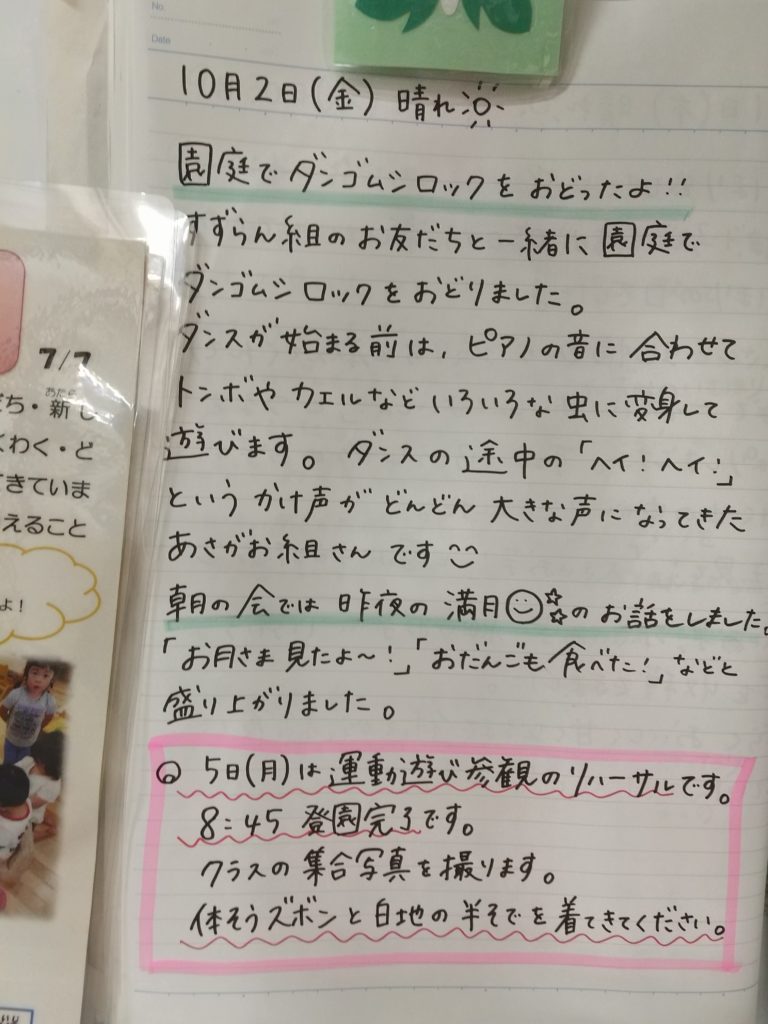 No.
Date
10月2日(金) 晴れ
園庭でダンゴムシロックをおどったよ!!
すずらん組のお友だちと一緒に園庭で
ダンゴムシロックをおどりました。
ダンスが始まる前は、ピアノの音に合わせて
トンボやカエルなどいろいろな虫に変身して
遊びます。ダンスの途中の「ヘイ!ヘイ!」
というかけ声がどんどん大きな声になってきた
あさがお組さんです
朝の会では昨夜の満月のお話をしました。
「お月さま見たよ～!」「おだんごも食べた!」などと
盛り上がりました。
5日(月)は運動遊び参観のリハーサルです。
8:45 登園完了です。
クラスの集合写真を撮ります。
体そうズボンと白地の半そでを着てきてください。
7/7
あたら
ち・新し
くわく・ど
きていま
えること
よ!